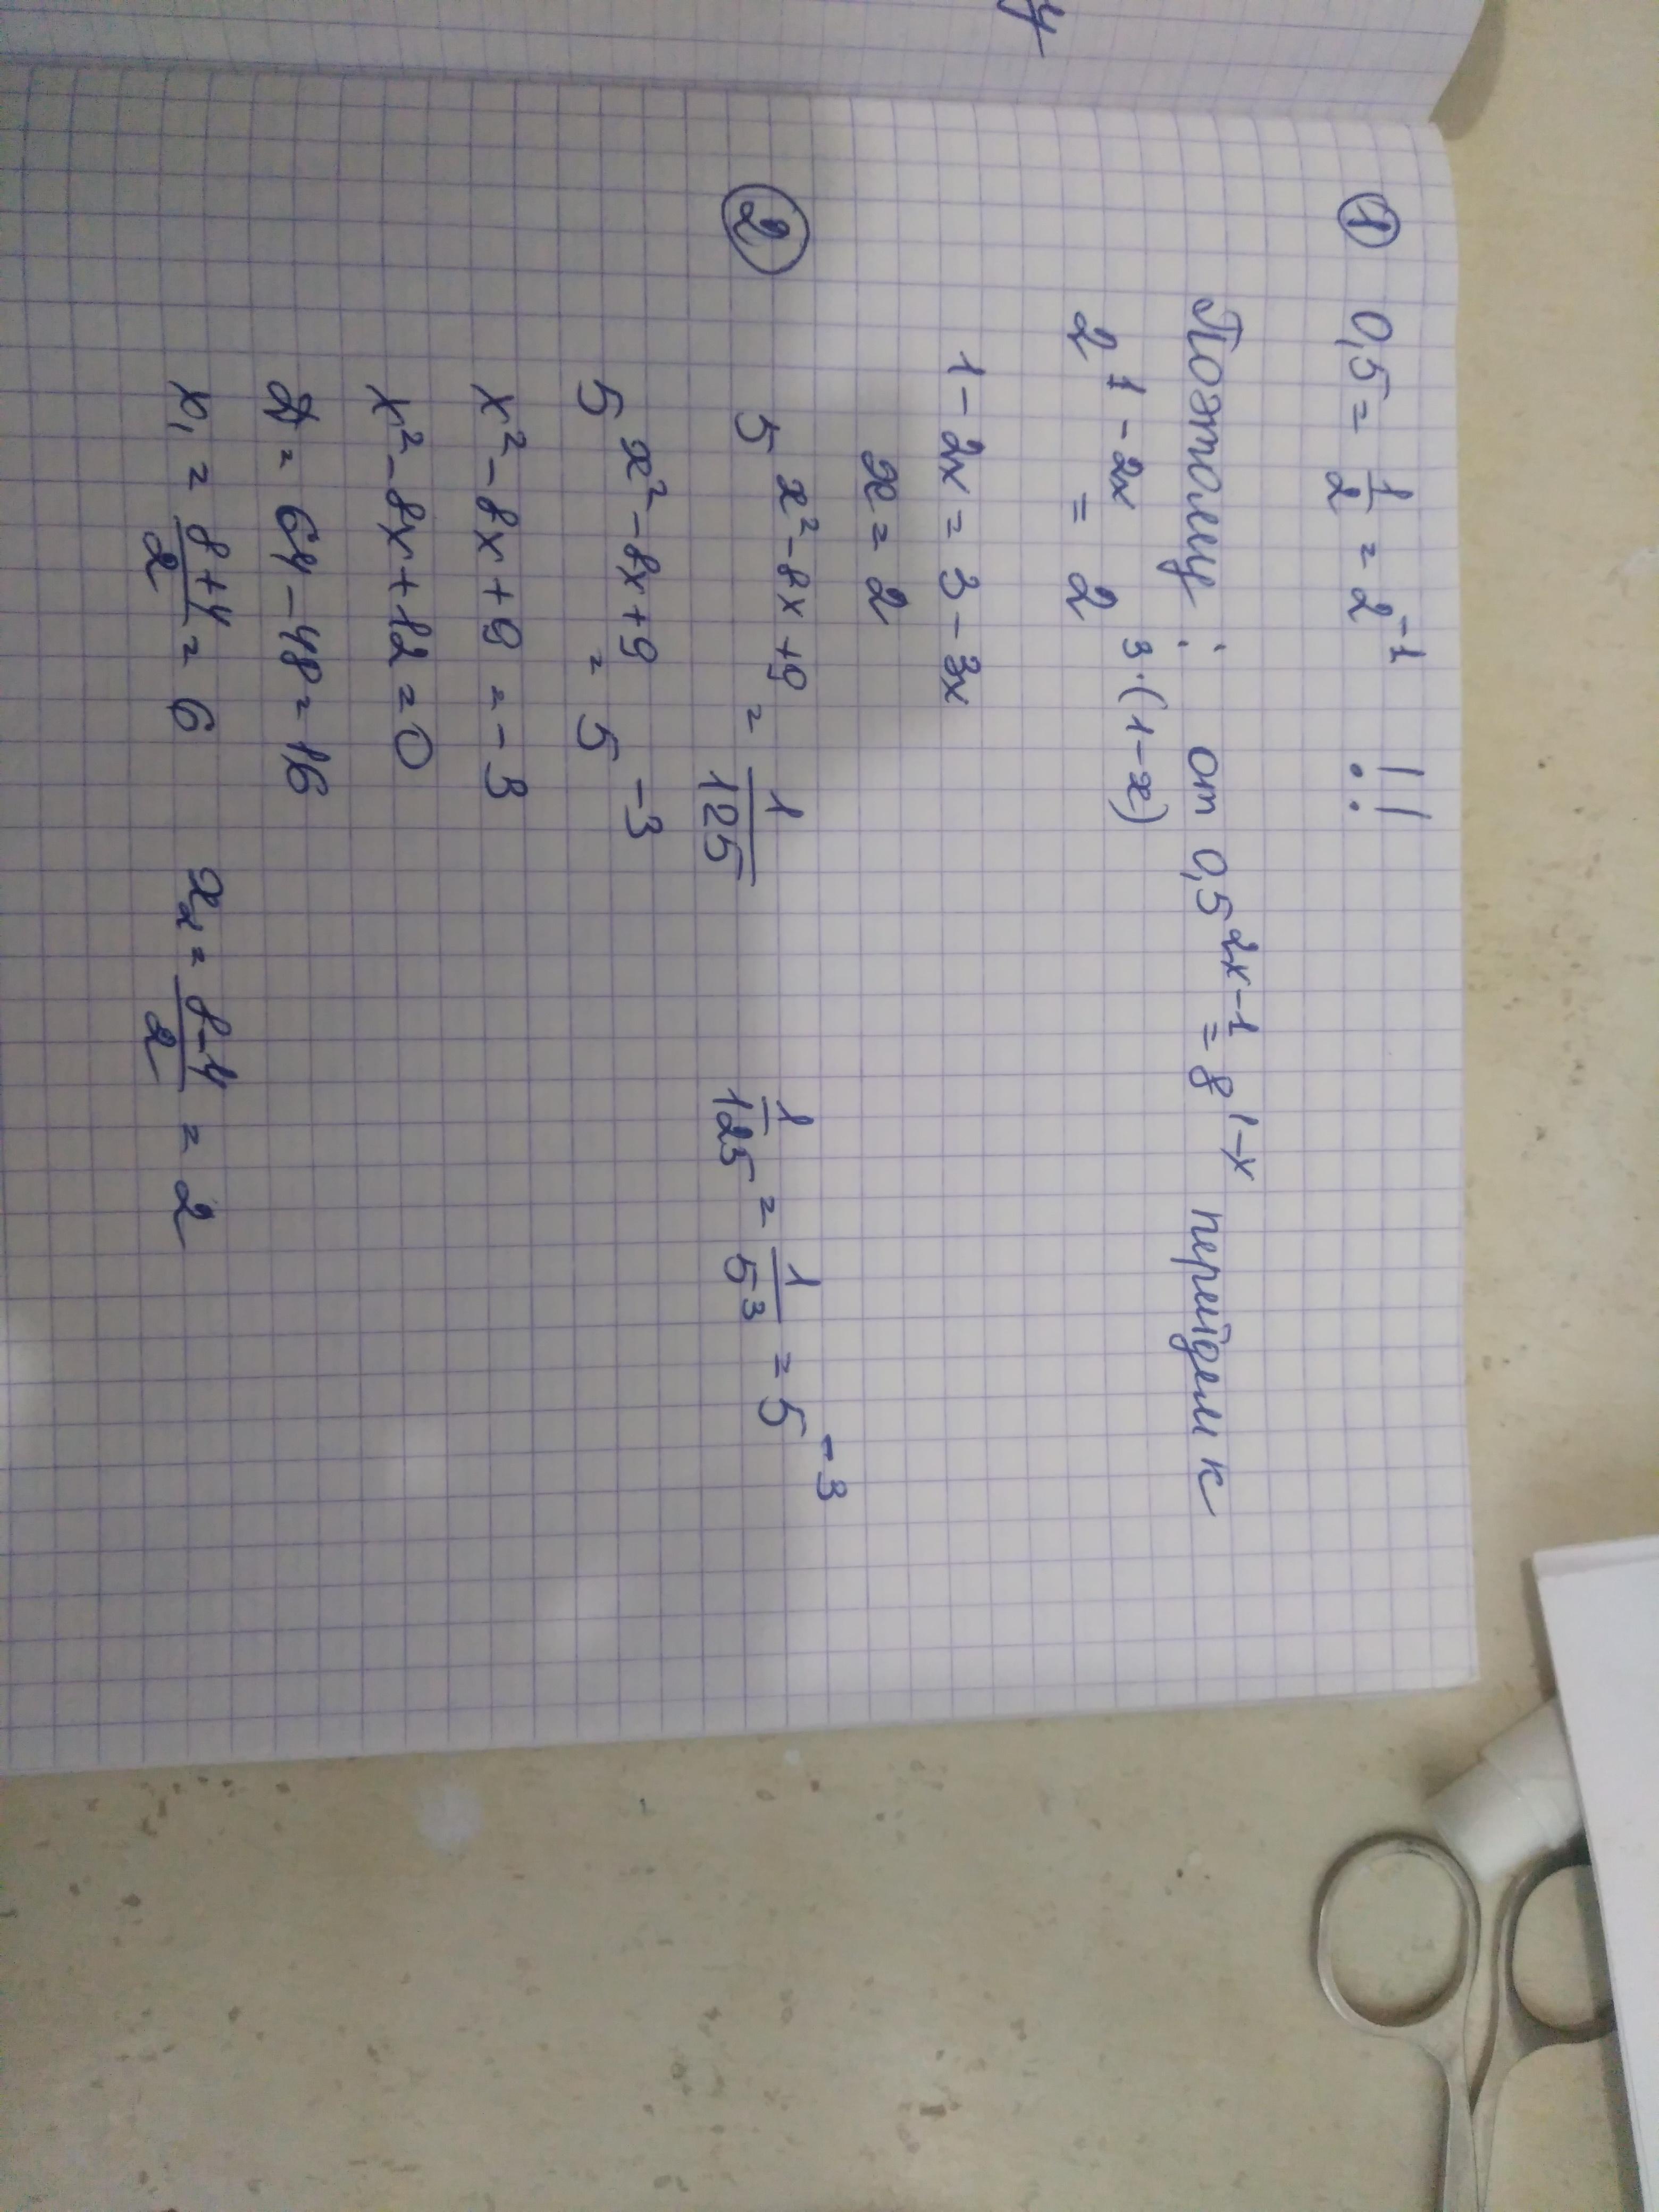 ① 0,5 = 1/2 = 2^-1 !!
Поэтому: от 0,5^2x-1 = 8^1-x перейдем к
2^1-2x = 2^3·(1-x)
1 - 2x = 3 - 3x
x = 2
② 5^x²-8x+9 = 1/125 1/125 = 1/5³ = 5^-3
5^x²-8x+9 = 5^-3
x² - 8x + 9 = -3
x² - 8x + 12 = 0
D = 64 - 48 = 16
x₁ = 8+4/2 = 6 x₂ = 8-4/2 = 2